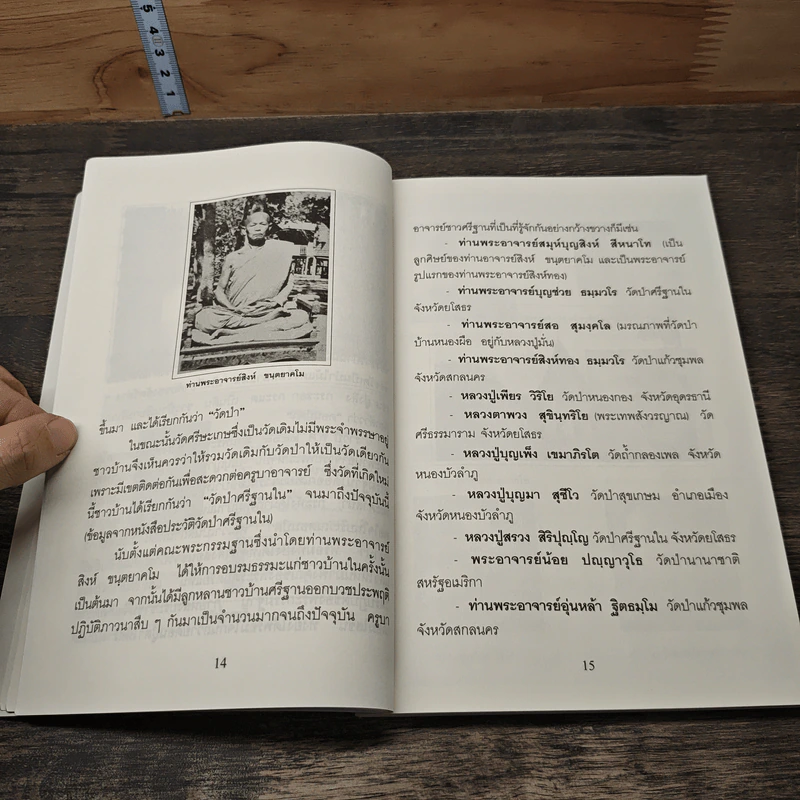 5
4
3
2
1
ท่านพระอาจารย์สิงห์ ขนฺตยาคโม
ขึ้นมา และได้เรียกกันว่า "วัดป่า"
ในขณะนั้นวัดศรีษะเกษซึ่งเป็นวัดเดิมไม่มีพระจำพรรษาอยู่
ชาวบ้านจึงเห็นควรว่าให้รวมวัดเดิมกับวัดป่าให้เป็นวัดเดียวกัน
เพราะมีเขตติดต่อกันเพื่อสะดวกต่อครูบาอาจารย์ ซึ่งวัดที่เกิดใหม่
นี้ชาวบ้านได้เรียกกันว่า "วัดป่าศรีฐานใน" จนมาถึงปัจจุบันนี้
(ข้อมูลจากหนังสือประวัติวัดป่าศรีฐานใน)
นับตั้งแต่คณะพระกรรมฐานซึ่งนำโดยท่านพระอาจารย์
สิงห์ ขนฺตยาคโม ได้ให้การอบรมธรรมะแก่ชาวบ้านในครั้งนั้น
เป็นต้นมา จากนั้นได้มีลูกหลานชาวบ้านศรีฐานออกบวชประพฤติ
ปฏิบัติภาวนาสืบ ๆ กันมาเป็นจำนวนมากจนถึงปัจจุบัน ครูบา
14
อาจารย์ชาวศรีฐานที่เป็นที่รู้จักกันอย่างกว้างขวางก็มีเช่น
- ท่านพระอาจารย์สมุห์บุญสิงห์ สีหนาโท (เป็น
ลูกศิษย์ของท่านอาจารย์สิงห์ ขนฺตยาคโม และเป็นพระอาจารย์
รูปแรกของท่านพระอาจารย์สิงห์ทอง)
- ท่านพระอาจารย์บุญช่วย ธมฺมวโร วัดป่าศรีฐานใน
จังหวัดยโสธร
- ท่านพระอาจารย์สอ สุมงฺคโล (มรณภาพที่วัดป่า
บ้านหนองผือ อยู่กับหลวงปู่มั่น)
- ท่านพระอาจารย์สิงห์ทอง ธมฺมวโร วัดป่าแก้วชุมพล
จังหวัดสกลนคร
- หลวงปู่เพียร วิริโย วัดป่าหนองกอง จังหวัดอุดรธานี
- หลวงตาพวง สุขินฺทริโย (พระเทพสังวรญาณ) วัด
ศรีธรรมาราม จังหวัดยโสธร
- หลวงปู่บุญเพ็ง เขมาภิรโต วัดถ้ำกลองเพล จังหวัด
หนองบัวลำภู
- หลวงปู่บุญมา สุชีโว วัดป่าสุขเกษม อำเภอเมือง
จังหวัดหนองบัวลำภู
- หลวงปู่สรวง สิริปุญฺโญ วัดป่าศรีฐานใน จังหวัดยโสธร
- พระอาจารย์น้อย ปญฺญาวุโธ วัดป่านานาชาติ
สหรัฐอเมริกา
- ท่านพระอาจารย์อุ่นหล้า ฐิตธมฺโม วัดป่าแก้วชุมพล
จังหวัดสกลนคร
15